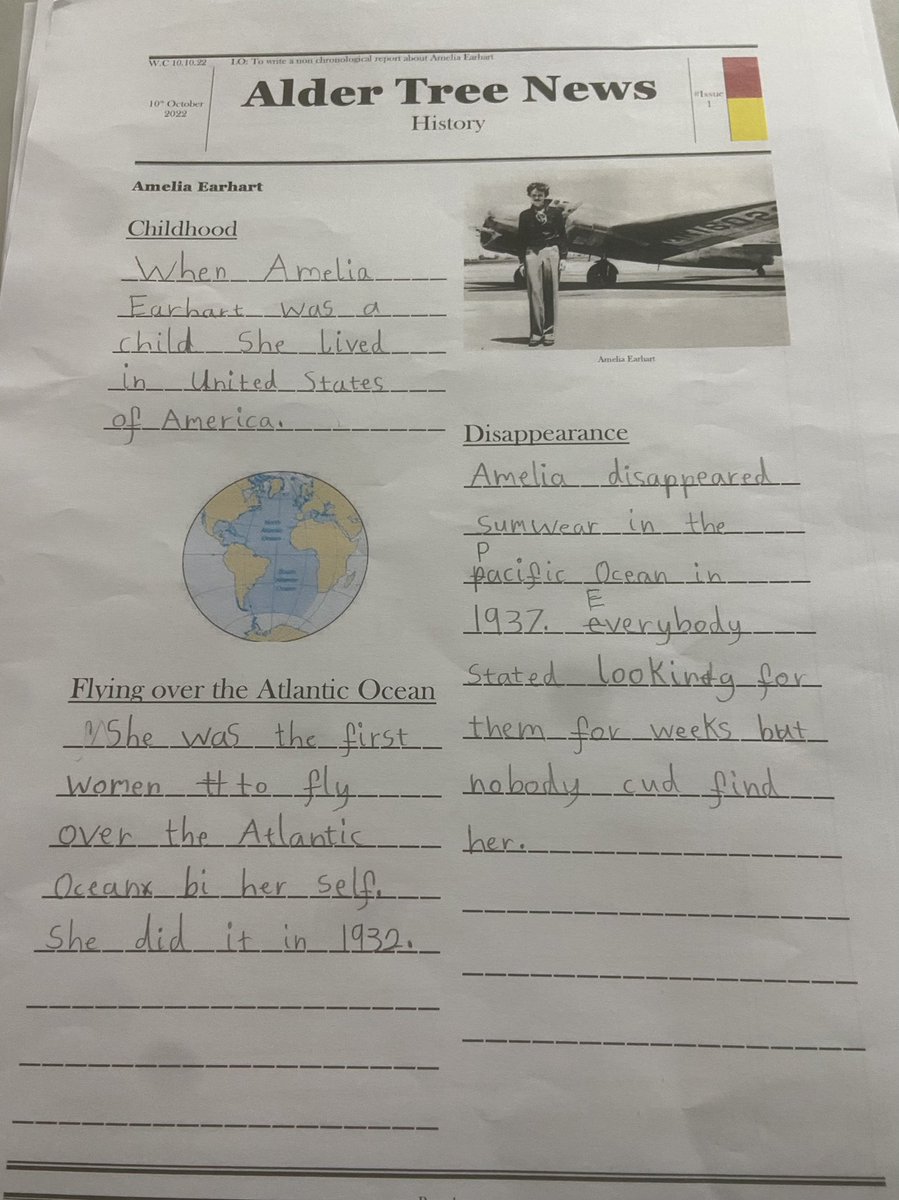 W.C 10.10.22 LO: To write a non chronological report about Amelia Earhart
10th October
2022
Alder Tree News
History
#Issue
1
Amelia Earhart
Childhood
When Amelia
Earhart was a
child She lived
in United States
of America.
North
Atlantic
Ocean
South
Atlantic
Ocean
Flying over the Atlantic Ocean
She was the first
women to fly
over the Atlantic
Ocean bi her self.
She did it in 1932.
Amelia Earhart
Disappearance
Amelia disappeared
sumwear in the
Pacific Ocean in
1937. Everybody
Stated looking for
them for weeks but
nobody cud find
her.